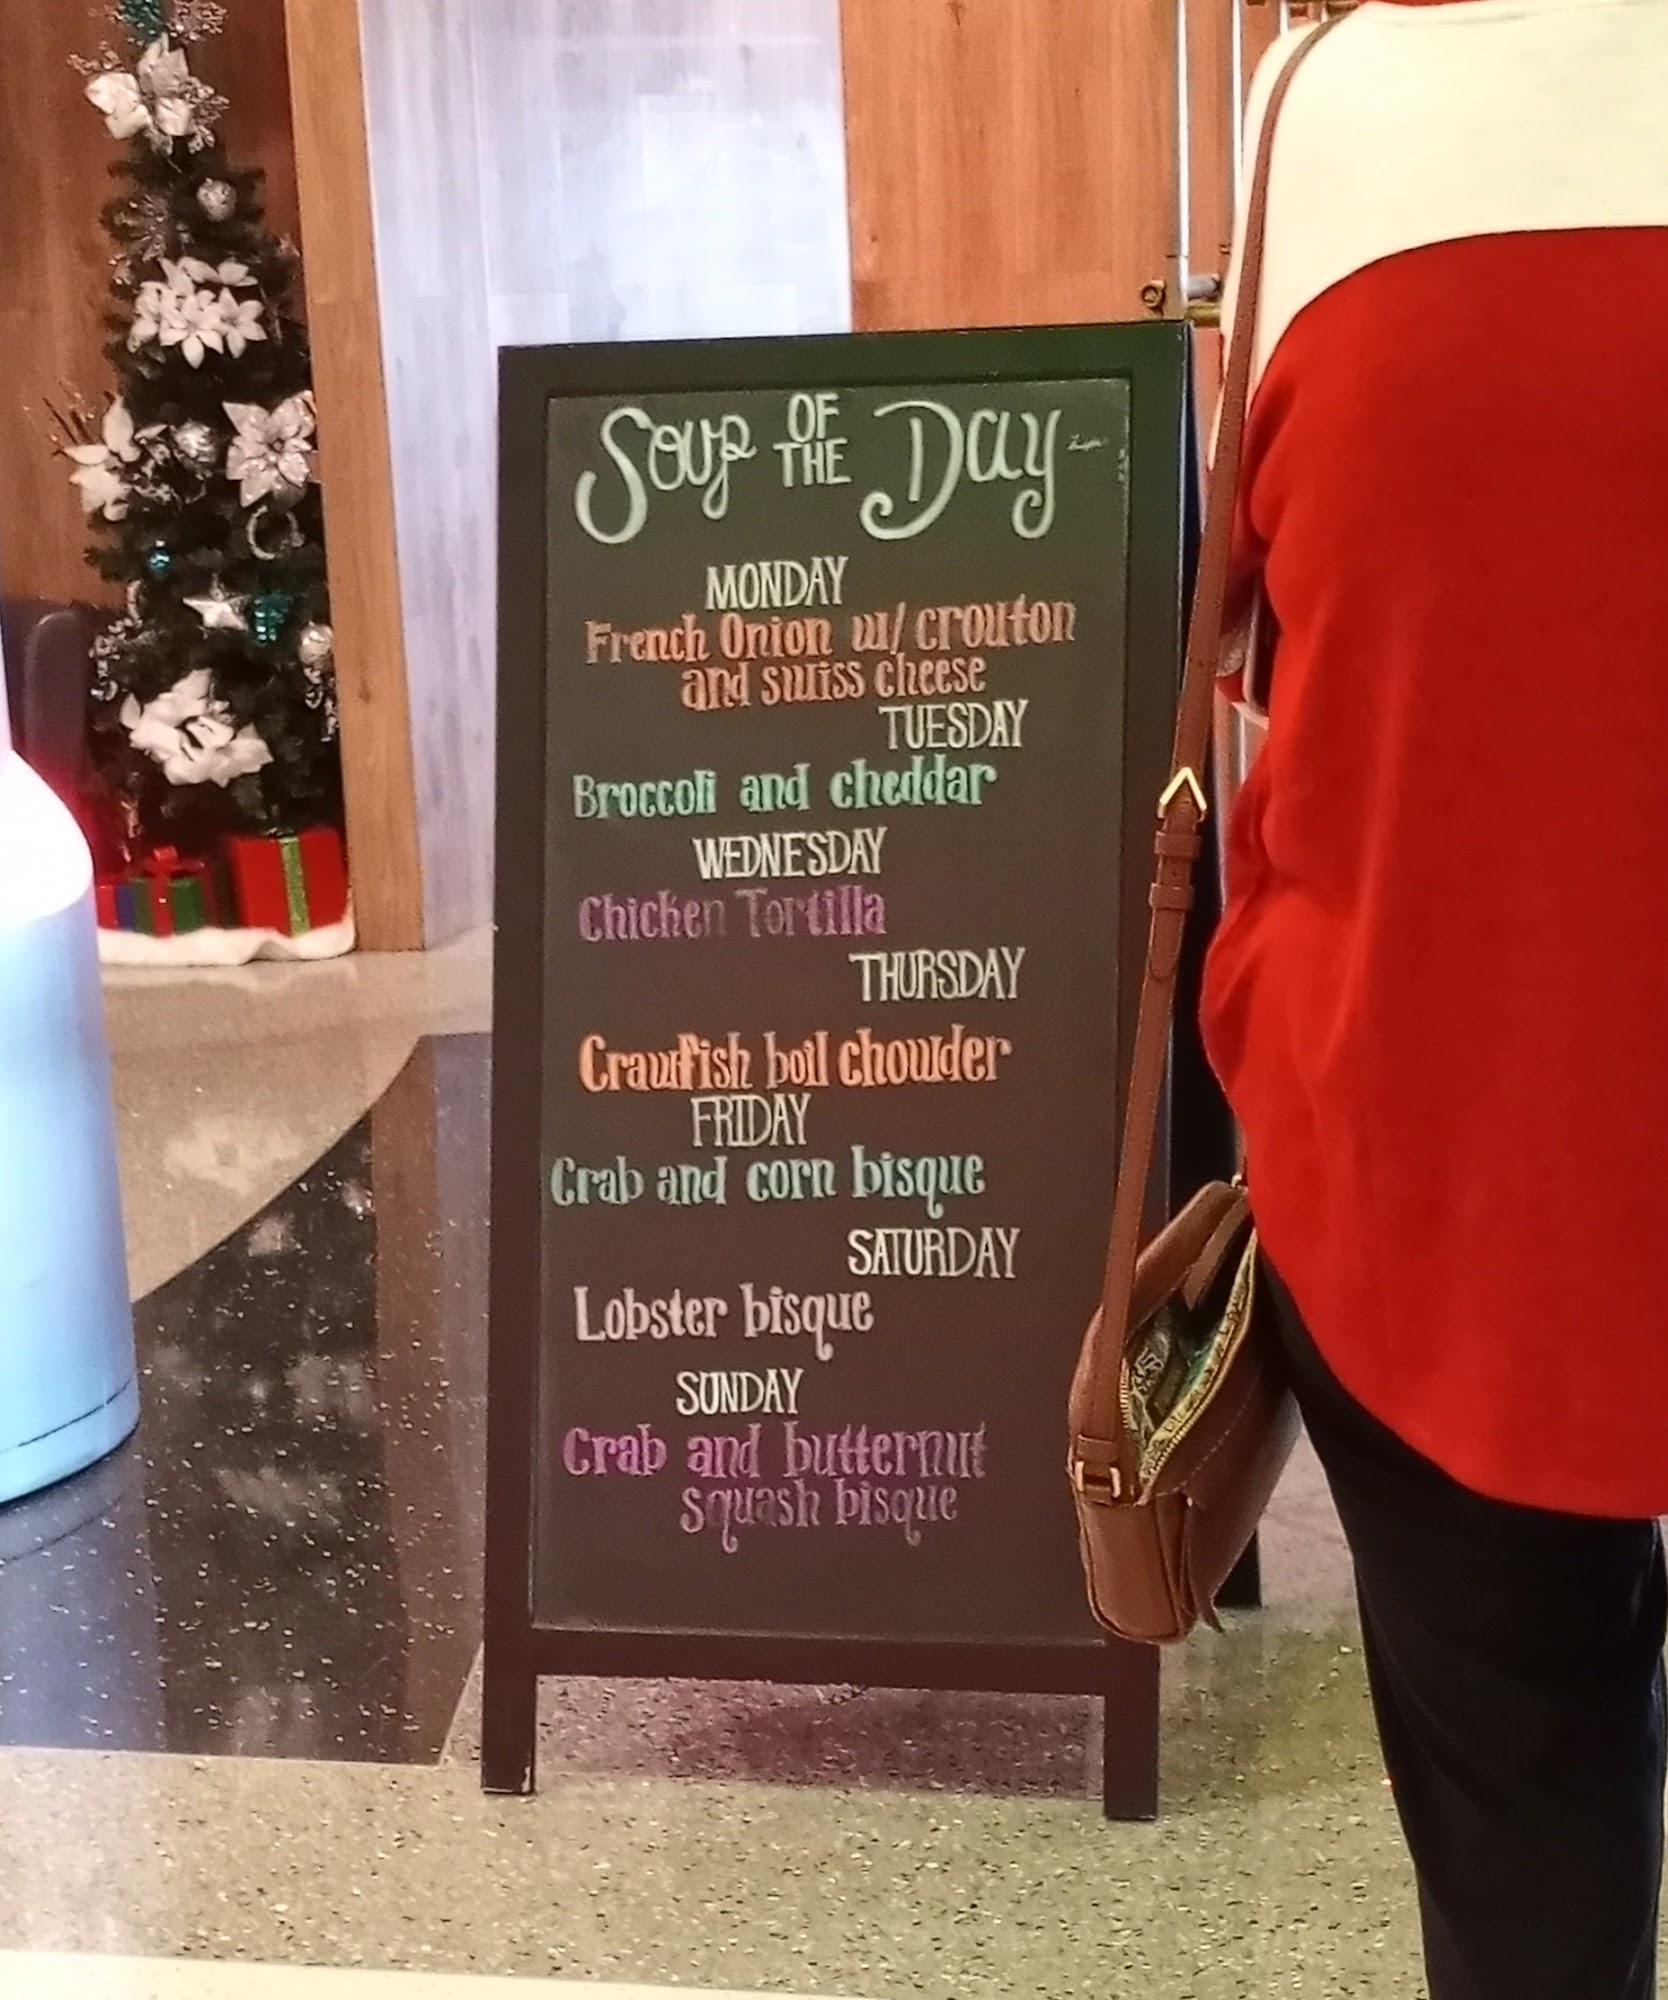 Soup OF THE Day
MONDAY
French Onion w/ crouton
and swiss cheese
TUESDAY
Broccoli and cheddar
WEDNESDAY
Chicken Tortilla
THURSDAY
Crawfish boil chowder
FRIDAY
Crab and corn bisque
SATURDAY
Lobster bisque
SUNDAY
Crab and butternut
squash bisque